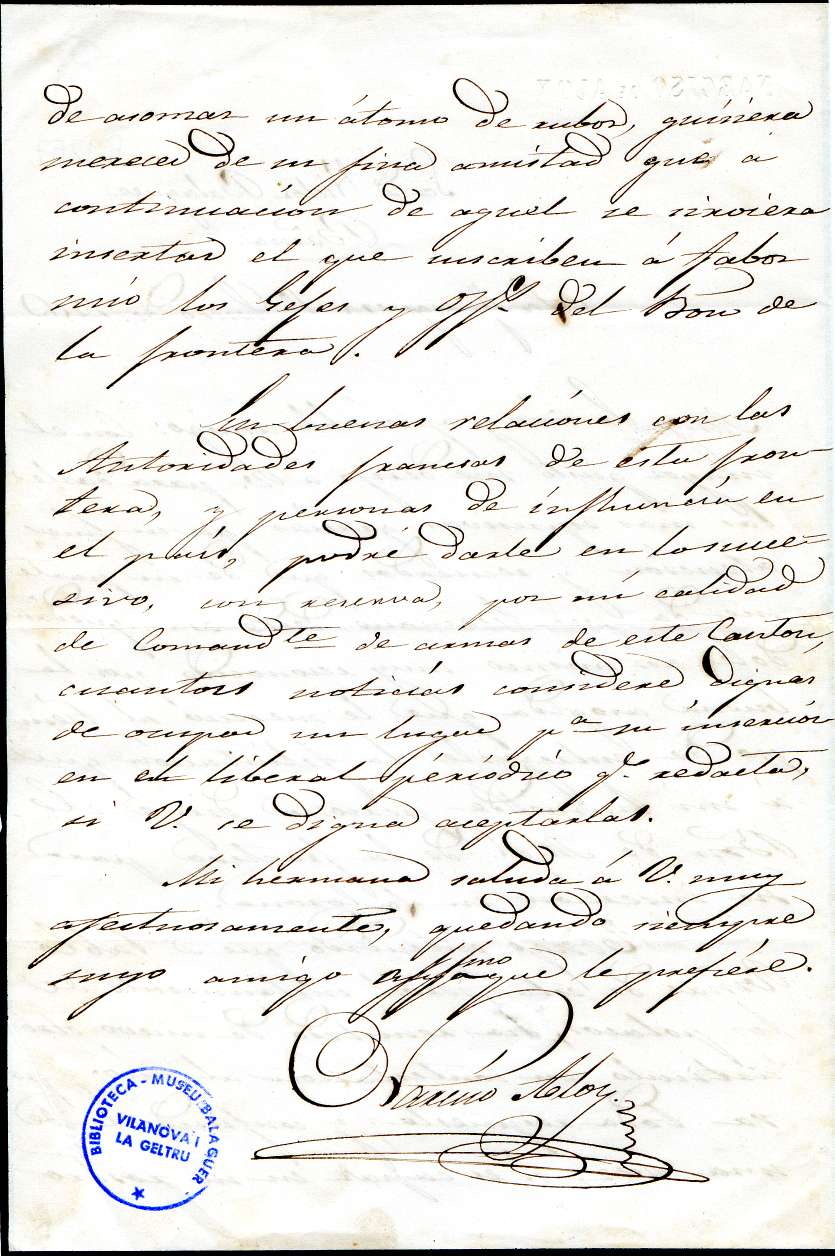 de asomar un átomo de rubor, quisiera
merecer de su fina amistad que á
continuación de aquel se sirviera
insertar el que suscriben á fabor
mio los Gefes y Off.s del Bon de
la frontera.
En buenas relaciones con las
Autoridades francesas de esta fron-
tera, y personas de influencia en
el país, podré darle en lo suce-
sivo, con reserva, por mi calidad
de Comandte de armas de este Canton,
cuantas noticias considere dignas
de ocupar un lugar pa su inserción
en el liberal periódico q.e redacta,
si V. se digna aceptarlas.
Mi hermana saluda á V. muy
afectuosamente, quedando siempre
suyo amigo affmo que le prefiere.
Narciso Aloy.
BIBLIOTECA - MUSEU BALAGUER
VILANOVA I
LA GELTRU